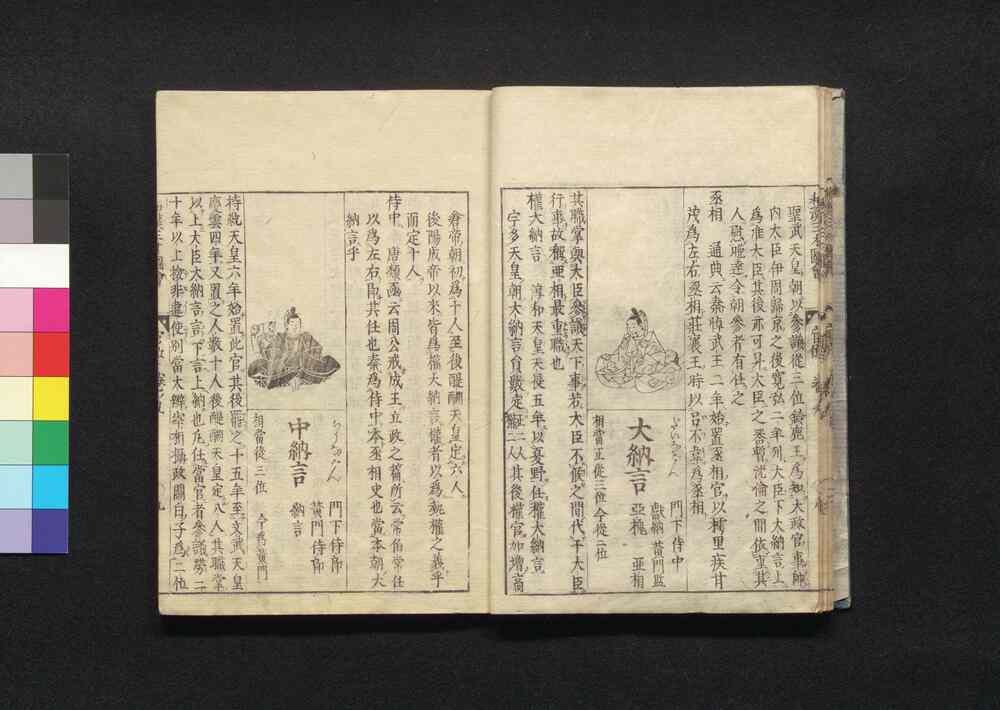 聖武天皇朝以參議從三位鈴鹿王爲知太政官事帥
内大臣伊周歸京之後寛弘二年列大臣下大納言上
爲准大臣其後亦可昇大臣之者暫沈倫之間依宣其
人慰
令朝參者有任之
丞相　通典云秦悼武王二年始置丞相官以樗里疾甘
茂爲左右丞相莊襄王時以呂不韋爲丞相
大納言
門下侍中
獻納　黄門監
亞槐　亞相
相當正從三位今從二位
其職掌與大臣參議天下事若大臣不候之間代于大臣
行事故稱亞相最重職也
權大納言　淳和天皇天長五年以夏野任權大納言
宇多天皇朝大納言員數定
二人其後權官加增高
倉帝朝初爲十人至後醍醐天皇定六人
後陽成帝以來皆爲權大納言權者以爲執權之義乎
而定十人
侍中　唐類函云周公戒成王立政之篇所云常伯常任
以爲左右卽其任也秦爲侍中本丞相史也當本朝大
納言乎
中納言
門下侍郎
黄門侍郎
納言
相當從三位　今爲黄門
持統天皇六年始置此官其後罷之十五年至文武天皇
慶雲四年又置之人數十人後醍醐天皇定八人其職掌
以上大臣大納言言下言上納也凡任當官者參議勞二
十年以上撿非違使別當大辨宰相攝政關白子爲二位